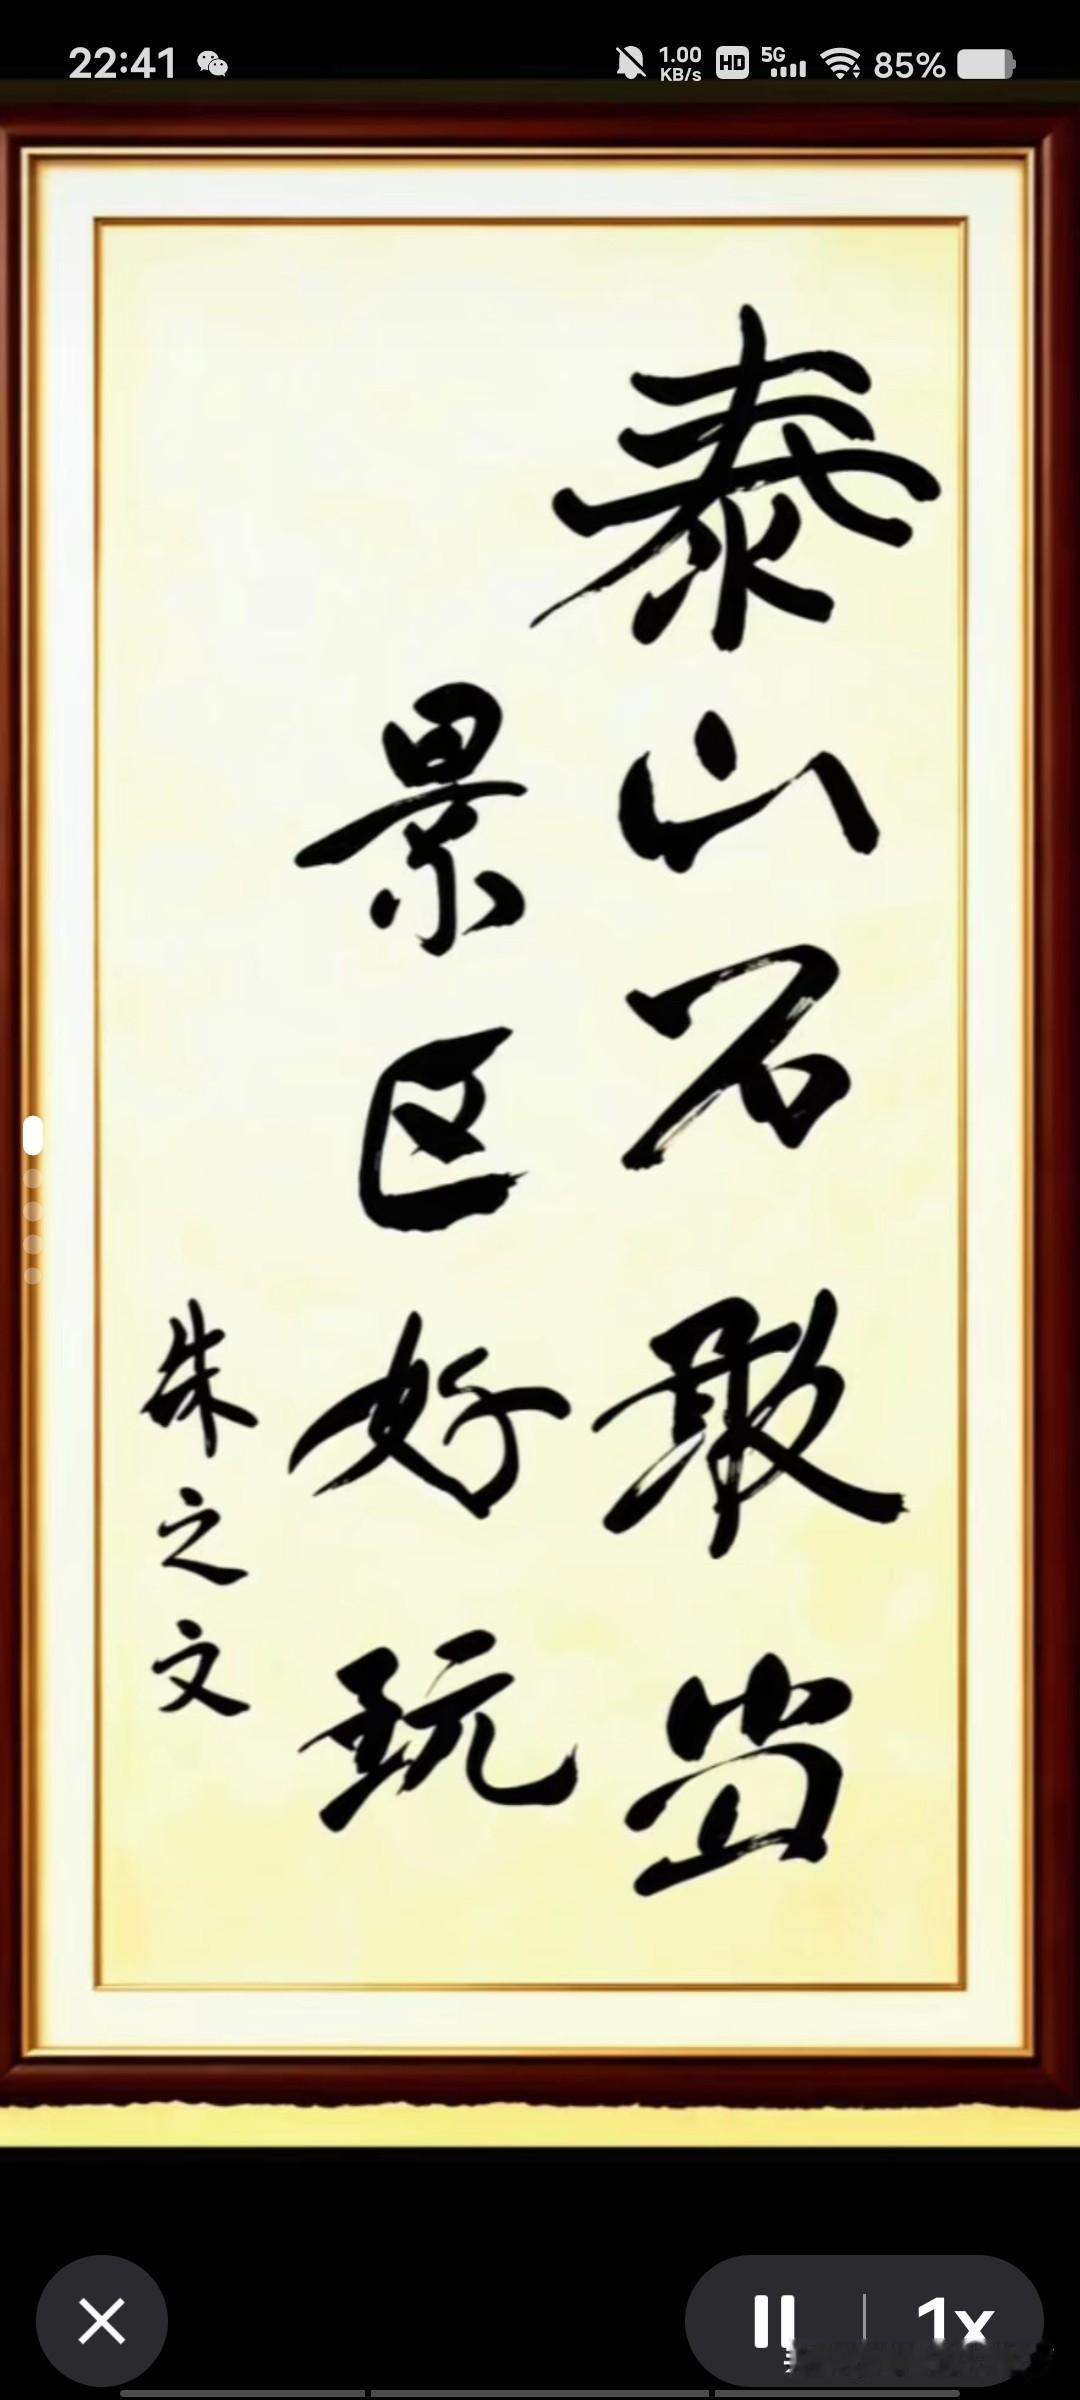 22:41
1.00
KB/s
HD
5G
85%
泰山石敢当
景区好玩
朱之文
1x